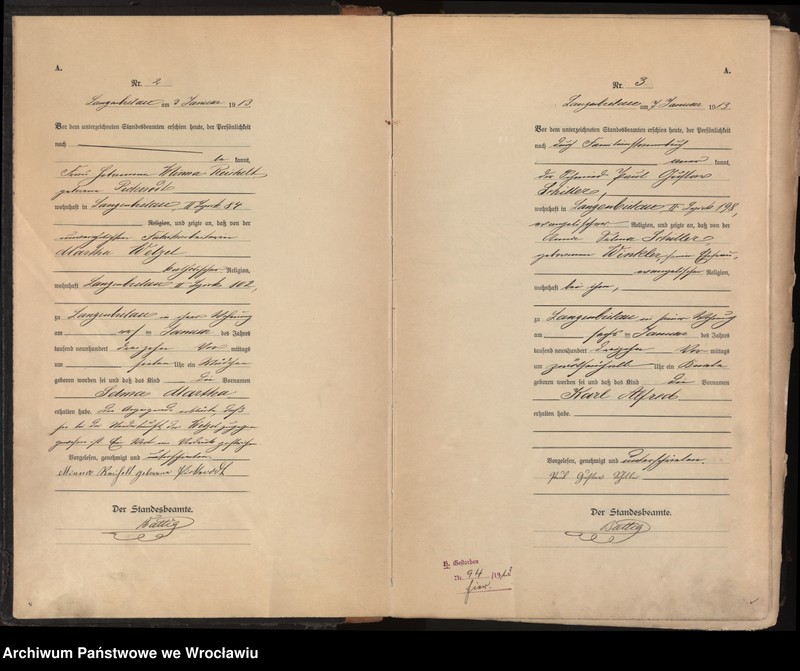 A.
Nr. 2
Langenbielau am 2 Januar 1913
Vor dem unterzeichneten Standesbeamten erschien heute, der Persönlichkeit
nach
be kannt,
Frau Hebamme Minna Reichelt
geborene
wohnhaft in Langenbielau II Bezirk 84
Religion, und zeigte an, daß von der
unverehelichten Fabrikarbeiterin
Martha Wetzel
katholischer Religion,
wohnhaft Langenbielau II Bezirk 102,
zu Langenbielau in ihrer Wohnung
am in Januar des Jahres
tausend neunhundert dreizehn Vor mittags
um sieben Uhr ein Mädchen
geboren worden sei und daß das Kind die Vornamen
Selma Martha
erhalten habe. Die Anzeigende erklärte, daß
sie bei der Niederkunft der Wetzel zugegen
gewesen ist. Ein Wort im Vordruck gestrichen
Vorgelesen, genehmigt und unterschrieben.
Minna Reichelt geborene
Der Standesbeamte.
Battig
A.
Nr. 3
Langenbielau am 7 Januar 1913
Vor dem unterzeichneten Standesbeamten erschien heute, der Persönlichkeit
nach durch Familienstammbuch
aner kannt,
der Schmied Paul Gustav
Schiller,
wohnhaft in Langenbielau II Bezirk 198,
evangelischer Religion, und zeigte an, daß von der
Anna Selma Schiller
geborenen Winkler, seiner Ehefrau,
evangelischer Religion,
wohnhaft bei ihm,
zu Langenbielau in seiner Wohnung
am sechs in Januar des Jahres
tausend neunhundert dreizehn Vor mittags
um zwölfeinhalb Uhr ein Knabe
geboren worden sei und daß das Kind die Vornamen
Karl Alfred
erhalten habe.
Vorgelesen, genehmigt und unterschrieben.
Paul Gustav Schiller
Der Standesbeamte.
Battig
Gestorben
Nr. 94 1913
hier.
Archiwum Państwowe we Wrocławiu